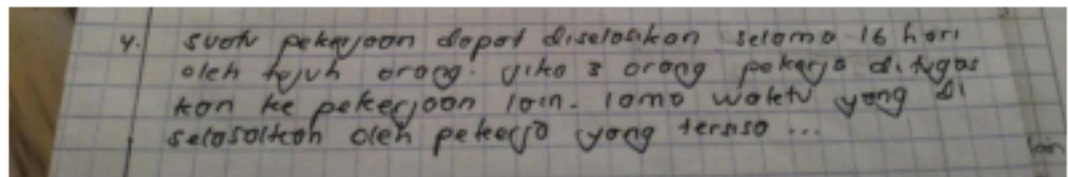 4. Suatu pekerjaan dapat diselesaikan selama 16 hari
oleh tujuh orang. jika 3 orang pekerja ditugas
kan ke pekerjaan lain. lama waktu yang di
selesaikan oleh pekerja yang tersisa ...